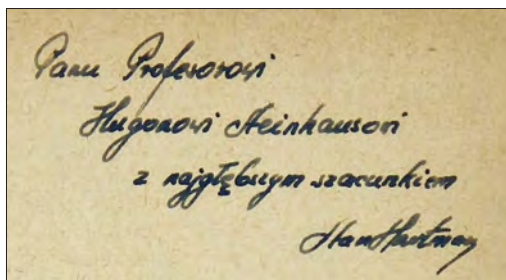 Panu Profesorowi
Hugonowi Steinhausowi
z najgłębszym szacunkiem
Stan Hartman